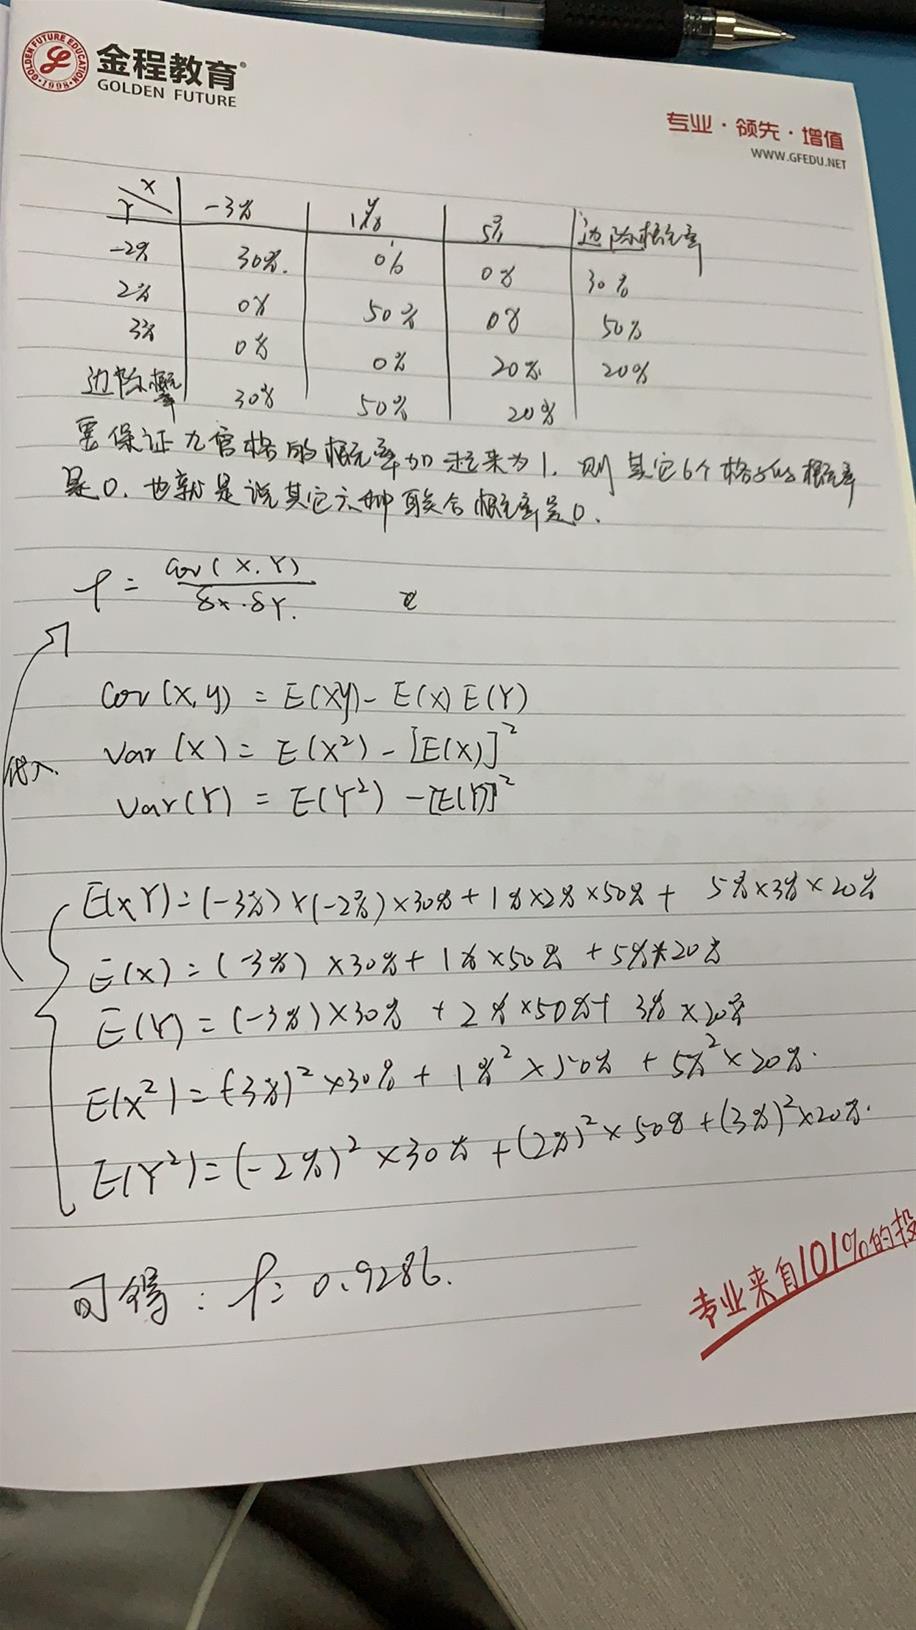 金程教育
GOLDEN FUTURE
GOLDEN FUTURE EDUCATION
1998
专业·领先·增值
WWW.GFEDU.NET
X
Y
-3% 1% 5% 边际概率
-2% 30%. 0% 0% 30%
2% 0% 50% 0% 50%
3% 0% 0% 20% 20%
边际概率 30% 50% 20%
要保证九宫格的概率加起来为1. 则其它6个格子的概率
是0. 也就是说其它六种联合概率是0.
ρ = Cov(X.Y)
δx·δY.
Cov(X,y) = E(XY) - E(X) E(Y)
Var(X) = E(X²) - [E(X)]²
代入.
Var(Y) = E(Y²) - [E(Y)]²
E(XY) = (-3%)×(-2%)×30% + 1%×2%×50% + 5%×3%×20%
E(X) = (-3%)×30% + 1%×50% + 5%×20%
E(Y) = (-3%)×30% + 2%×50% + 3%×20%
E(X²) = (-3%)²×30% + 1%²×50% + 5%²×20%.
E(Y²) = (-2%)²×30% + (2%)²×50% + (3%)²×20%.
可得: ρ = 0.9286.
专业来自101%的投